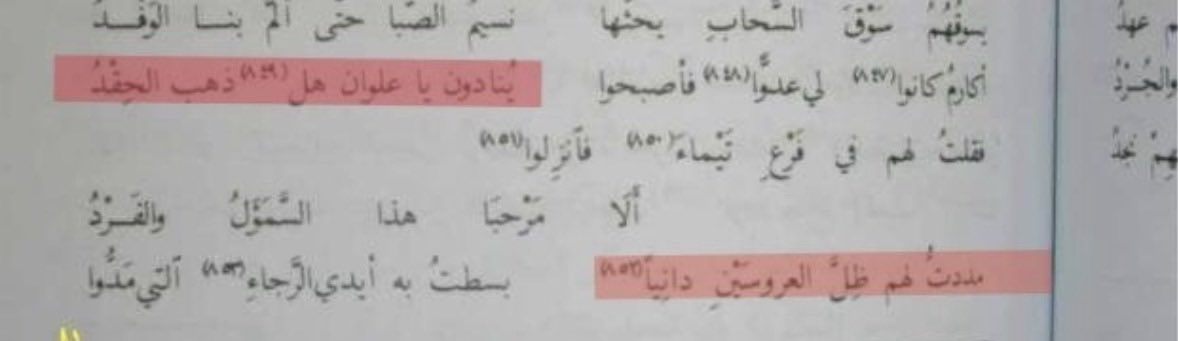 يسوقُهُمُ سَوْقَ السَّحابِ يحثها نسيمُ الصَّبا حتَّى ألمَّ بنا الوَفْدُ
أكارمُ كانوا(٨٤٧) لي عدوًّا(٨٤٨) فأصبحوا يُنادون يا علوان هل(٨٤٩) ذهب الحِقْدُ
فقلتُ لهم في فَرْعِ تَيْماءَ(٨٥٠) فآنزِلوا(٨٥١)
أَلَا مَرْحبَا هذا السَّمَوّلُ والفَرْدُ
مددتُ لهم ظِلَّ العروسَيْنِ دانِياً(٨٥٢) بسطتُ به أيدي الرَّجاءِ(٨٥٣) آلتي مَدُّوا
م عهدُ
والجُرْدُ